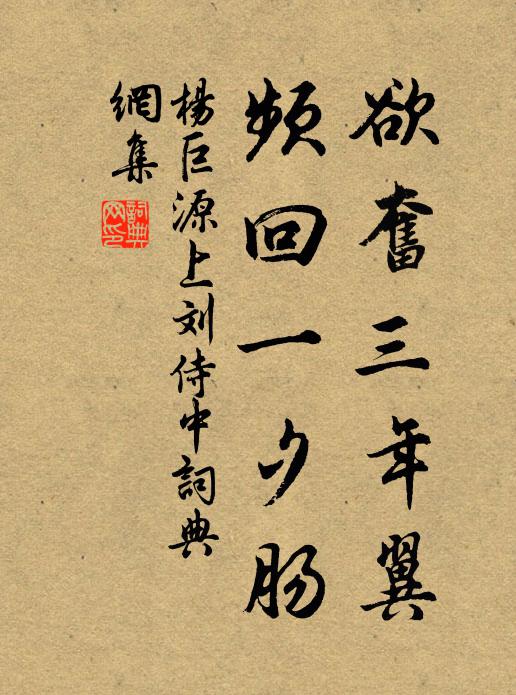 欲奮三年翼
頻回一夕肠
楊巨源上刘侍中詞典
網集
詞典
网印